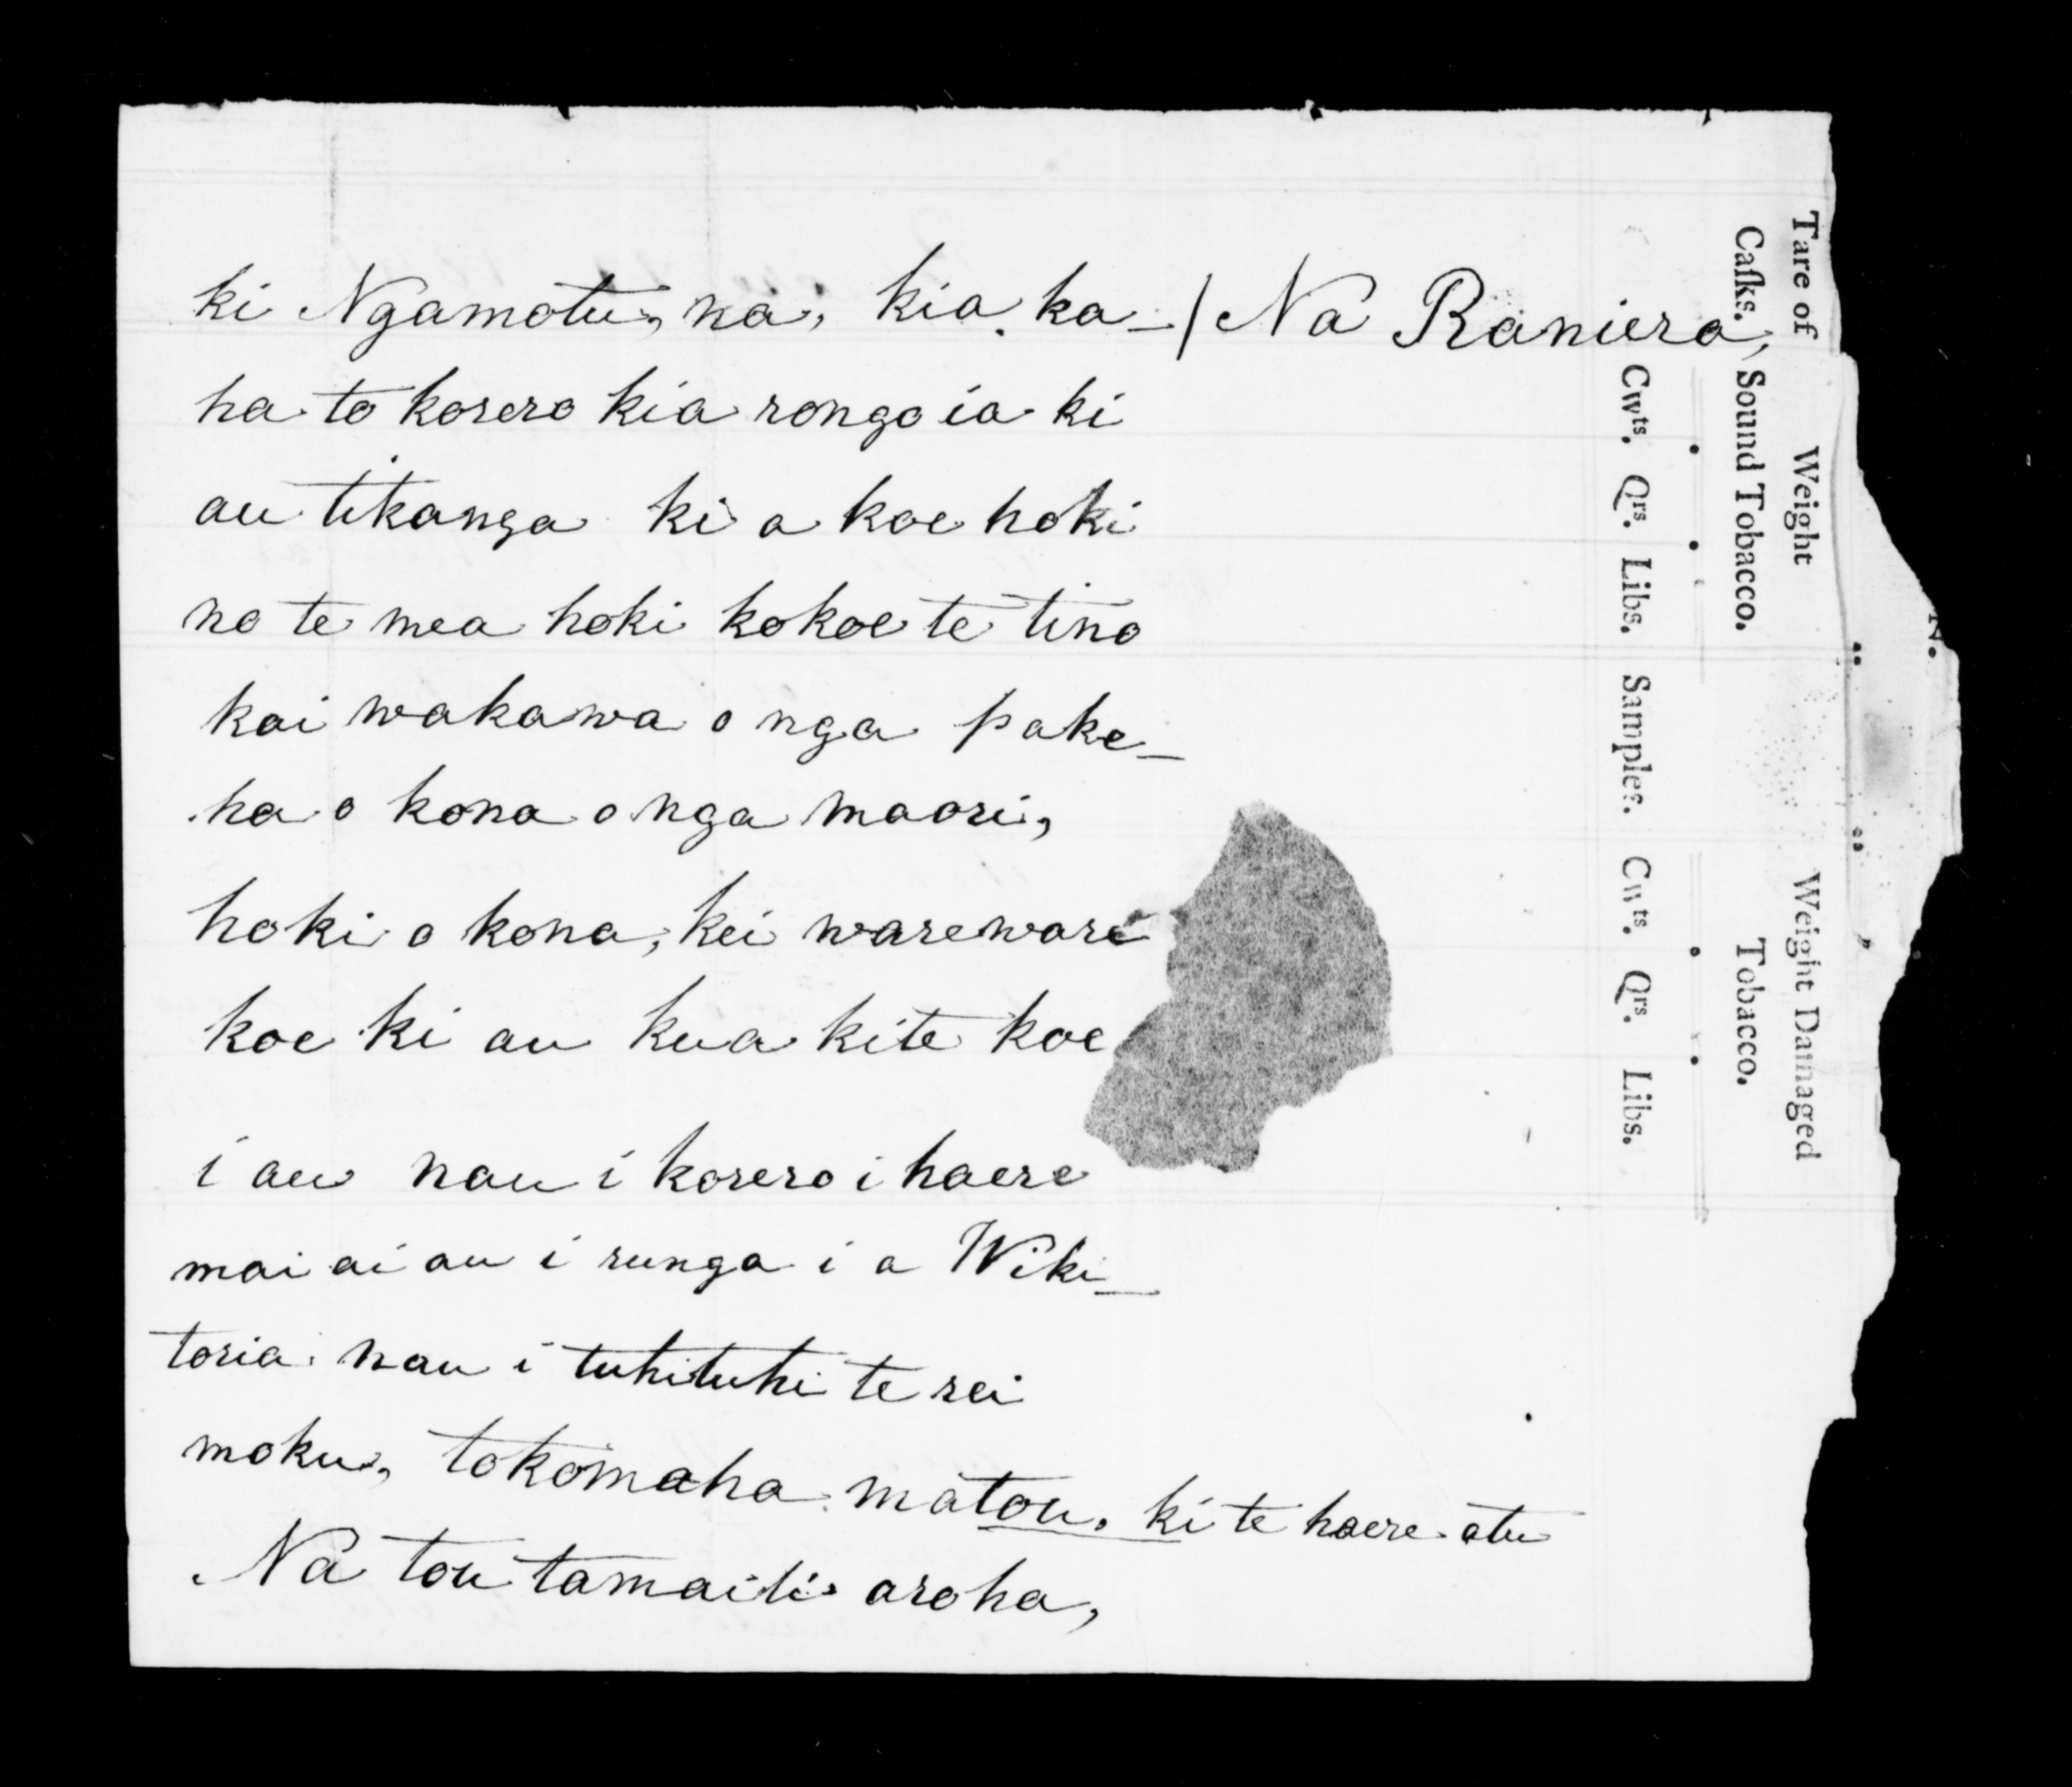 ki Ngamotu, na, kia ka-/ Na Raniera,
ha to korero kia rongo ia ki
au tikanga ki a koe hoki
no te mea hoki ko koe te tino
kai wakawa o nga pake-
ha o kona o nga maori,
hoki o kona, kei wareware
koe ki au kua kite koe
i au nau i korero i haere
mai ai au i runga i a Wiki-
toria nau i tuhituhi te rei
moku, tokomaha matou, ki te haere atu
Na tou tamaiti aroha,
Tare of Weight Weight Damaged
Casks. Sound Tobacco. Tobacco.
Cwts. Qrs. Libs. Samples. Cwts. Qrs. Libs.
N.